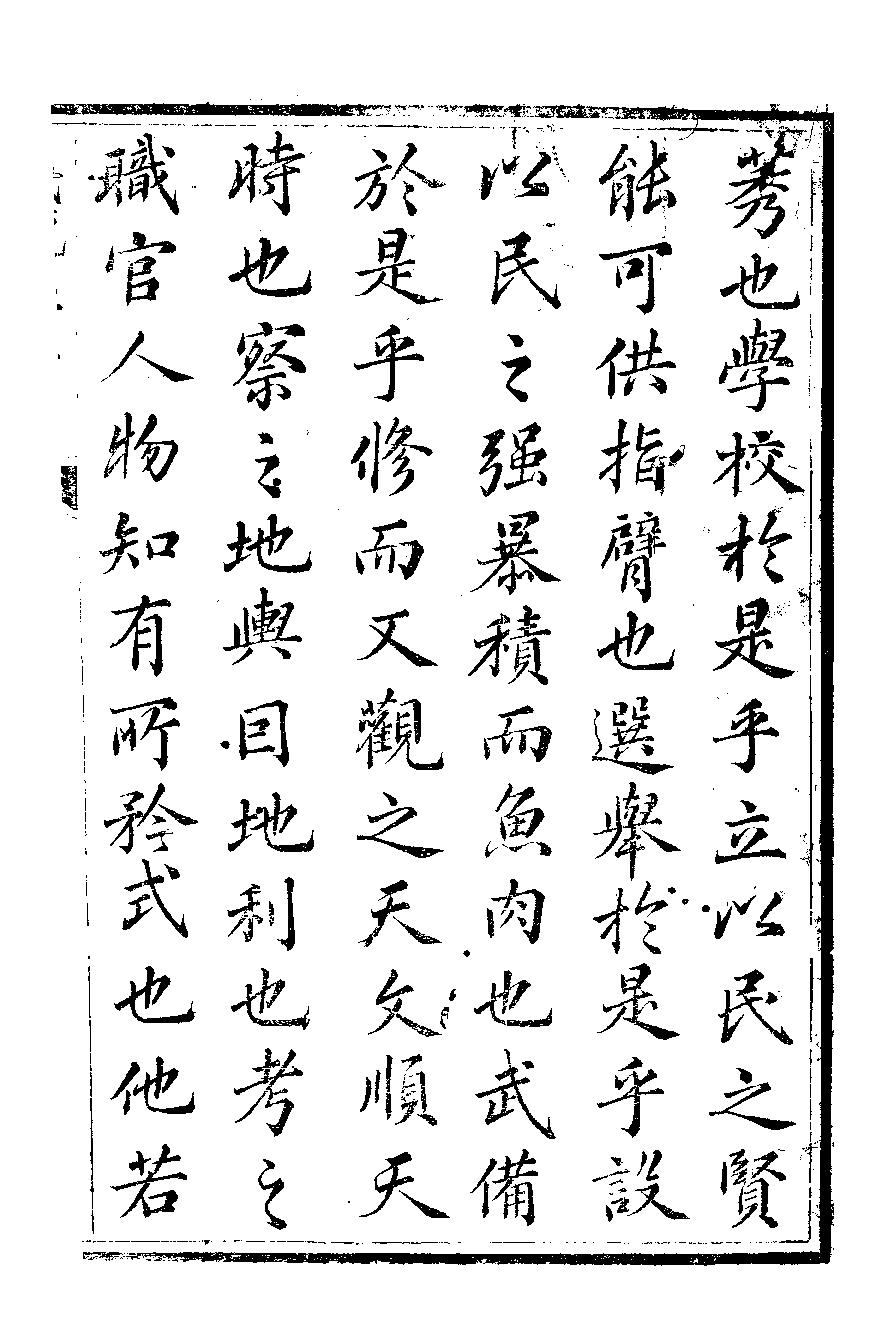 莠也學校於是乎立以民之賢
能可供指臂也選舉於是乎設
以民之强暴積而魚肉也武備
於是乎修而又觀之天文順天
時也察之地輿因地利也考之
職官人物知有所矜式也他若